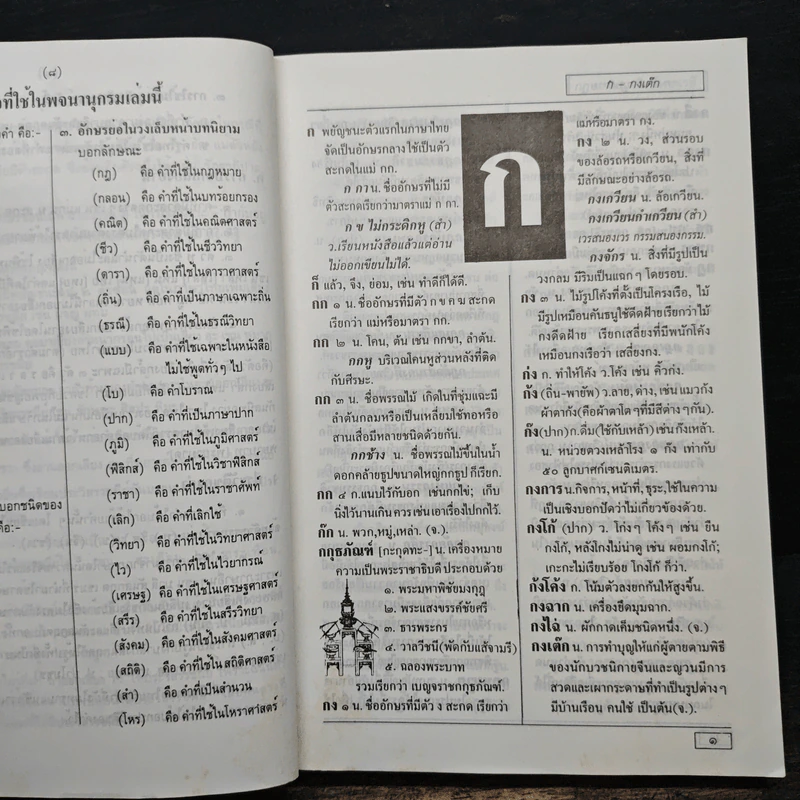 (๘)
ที่ใช้ในพจนานุกรมเล่มนี้
คำ คือ:-
บอกชนิดของ
คือ:-
๓. อักษรยอในวงเล็บหน้าบทนิยาม
บอกลักษณะ
(กฎ) คือ คำที่ใช้ในกฎหมาย
(กลอน) คือ คำที่ใช้ในบทร้อยกรอง
(คณิต) คือ คำที่ใช้ในคณิตศาสตร์
(ชีว) คือ คำที่ใช้ในชีววิทยา
(ดารา) คือ คำที่ใช้ในดาราศาสตร์
(ถิ่น) คือ คำที่เป็นภาษาเฉพาะถิ่น
(ธรณี) คือ คำที่ใช้ในธรณีวิทยา
(แบบ) คือ คำที่ใช้เฉพาะในหนังสือ
ไม่ใช้พูดทั่วๆ ไป
(โบ) คือ คำโบราณ
(ปาก) คือ คำที่เป็นภาษาปาก
(ภูมิ) คือ คำที่ใช้ในภูมิศาสตร์
(ฟิสิกส์) คือ คำที่ใช้ในวิชาฟิสิกส์
(ราชา) คือ คำที่ใช้ในราชาศัพท์
(เลิก) คือ คำที่เลิกใช้
(วิทยา) คือ คำที่ใช้ในวิทยาศาสตร์
(ไว) คือ คำที่ใช้ในไวยากรณ์
(เศรษฐ) คือ คำที่ใช้ในเศรษฐศาสตร์
(สรีร) คือ คำที่ใช้ในสรีรวิทยา
(สังคม) คือ คำที่ใช้ในสังคมศาสตร์
(สถิติ) คือ คำที่ใช้ใน สถิติศาสตร์
(สำ) คือ คำที่เป็นสำนวน
(โหร) คือ คำที่ใช้ในโหราศาสตร์
ก - กงเต๊ก
ก พยัญชนะตัวแรกในภาษาไทย
จัดเป็นอักษรกลางใช้เป็นตัว
สะกดในแม่ กก.
ก กา น. ชื่ออักษรที่ไม่มี
ตัวสะกดเรียกว่ามาตราแม่ ก กา.
ก ข ไม่กระดิกหู (สำ)
ว.เรียนหนังสือแล้วแต่อ่าน
ไม่ออกเขียนไม่ได้.
ก็ แล้ว, จึง, ย่อม, เช่น ทำดีก็ได้ดี.
กก ๑ น. ชื่ออักษรที่มีตัว ก ข ค ฆ สะกด
เรียกว่า แม่หรือมาตรา กก.
กก ๒ น. โคน, ต้น เช่น กกขา, ลำต้น.
กกหู บริเวณโคนหูส่วนหลังที่ติด
กับศีรษะ.
กก ๓ น. ชื่อพรรณไม้ เกิดในที่ชุ่มแฉะมี
ลำต้นกลมหรือเป็นเหลี่ยมใช้ทอหรือ
สานเสื่อมีหลายชนิดด้วยกัน.
กกช้าง น. ชื่อพรรณไม้ขึ้นในน้ำ
ดอกคล้ายธูปขนาดใหญ่กกธูป ก็เรียก.
กก ๔ ก.แนบไว้กับอก เช่นกกไข่; เก็บ
นิ่งไว้นานเกินควร เช่น เอาเรื่องไปกกไว้.
ก๊ก น. พวก,หมู่,เหล่า. (จ.).
กกุธภัณฑ์ [กะกุดทะ-] น. เครื่องหมาย
ความเป็นพระราชาธิบดี ประกอบด้วย
๑. พระมหาพิชัยมงกุฎ
๒. พระแสงขรรค์ชัยศรี
๓. ธารพระกร
๔. วาลวีชนี(พัดกับแส้จามรี)
๕. ฉลองพระบาท
รวมเรียกว่า เบญจราชกกุธภัณฑ์.
กง ๑ น. ชื่ออักษรที่มีตัว ง สะกด เรียกว่า
ก
แม่หรือมาตรา กง.
กง ๒ น. วง, ส่วนรอบ
ของล้อรถหรือเกวียน, สิ่งที่
มีลักษณะอย่างล้อรถ.
กงเกวียน น. ล้อเกวียน.
กงเกวียนกำเกวียน (สำ)
เวรสนองเวร กรรมสนองกรรม.
กงจักร น. สิ่งที่มีรูปเป็น
วงกลม มีริมเป็นแฉก ๆ โดยรอบ.
กง ๓ น. ไม้รูปโค้งที่ตั้งเป็นโครงเรือ, ไม้
มีรูปเหมือนคันธนูใช้ดีดฝ้ายเรียกว่าไม้
กงดีดฝ้าย เรียกเสลี่ยงที่มีพนักโค้ง
เหมือนกงเรือว่า เสลี่ยงกง.
ก่ง ก. ทำให้โค้ง ว.โค้ง เช่น คิ้วก่ง.
ก้ง (ถิ่น-พายัพ) ว.ลาย,ด่าง,เช่นแมวก้ง
ผ้าตาก้ง(คือผ้าตาโตๆที่มีสีต่างๆกัน).
ก๊ง(ปาก)ก.ดื่ม(ใช้กับเหล้า)เช่นก๊งเหล้า.
น. หน่วยตวงเหล้าโรง ๑ ก๊ง เท่ากับ
๕๐ ลูกบาศก์เซนติเมตร.
กงการ น.กิจการ,หน้าที่,ธุระ,ใช้ในความ
เป็นเชิงบอกปัดว่าไม่เกี่ยวข้องด้วย.
กงโก้ (ปาก) ว. โก่งๆ โค้งๆ เช่น ยืน
กงโก้, หลังโกงไม่น่าดู เช่น ผอมกงโก้;
เกะกะไม่เรียบร้อย โกงโก้ ก็ว่า.
ก้งโค้ง ก. โน้มตัวลงยกก้นให้สูงขึ้น.
กงฉาก น. เครื่องยึดมุมฉาก.
กงไฉ่ น. ผักกาดเค็มชนิดหนึ่ง. (จ.)
กงเต๊ก น. การทำบุญให้แก่ผู้ตายตามพิธี
ของนักบวชนิกายจีนและญวนมีการ
สวดและเผากระดาษที่ทำเป็นรูปต่างๆ
มีบ้านเรือน คนใช้ เป็นต้น(จ.).
๑